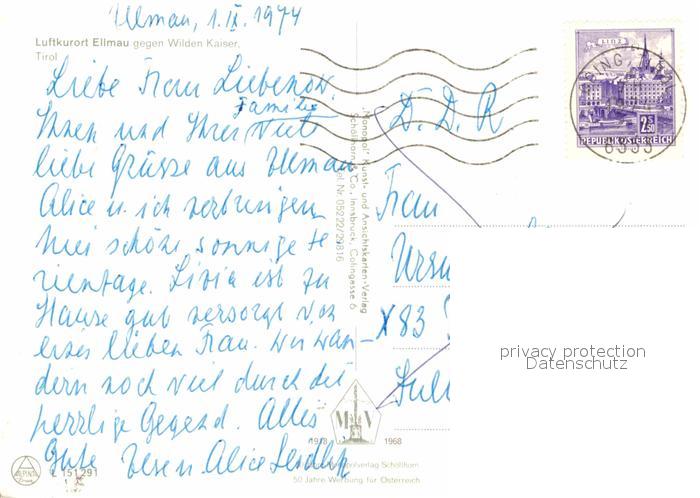 Ellmau, 1.IX.1974
Luftkurort Ellmau gegen Wilden Kaiser,
Tirol
Liebe Frau Liebenow.
Familie
Ihnen und Ihrer viele
liebe Grüsse aus Ellmau
Alice u. ich verbringen
hier schöne, sonnige Fe
rientage. Livia ist zu
Hause gut versorgt von
einer lieben Frau. Wir wan-
dern noch viel durch die
herrlige Gegend. Alles
Gute
Alice
„Monopol" Kunst- und Ansichtskarten-Verlag
Schöllhorn & Co., Innsbruck, Colingasse 6
Tel. Nr. 05222/29816
D.D.R
Frau
Ursu
X83
LINZ
2.50
REPUBLIK ÖSTERREICH
6353
privacy protection
Datenschutz
M V
1918 1968
Monopolverlag Schöllhorn
50 Jahre Werbung für Österreich
ALPINA
L 151291